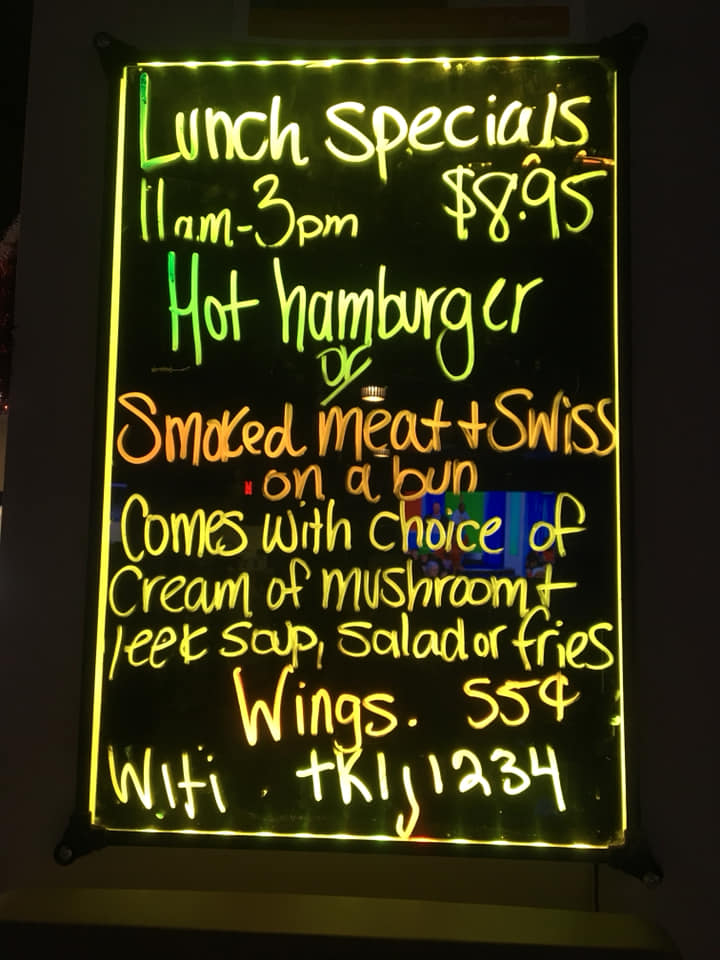 Lunch Specials
11am-3pm $8.95
Hot hamburger
or
Smoked meat + Swiss
on a bun
Comes with choice of
Cream of mushroom +
leek soup, salad or fries
Wings. 55¢
Wifi